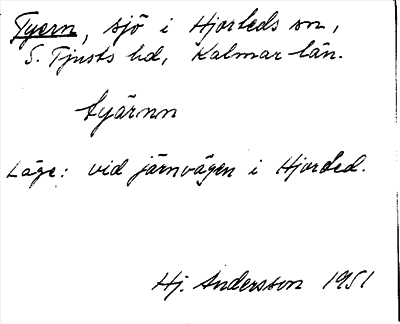 Tyern, sjö i Hjorteds sn,
S. Tjusts hd, Kalmar län.
tyärnn
Läge: vid järnvägen i Hjorted.
Hj. Andersson 1951